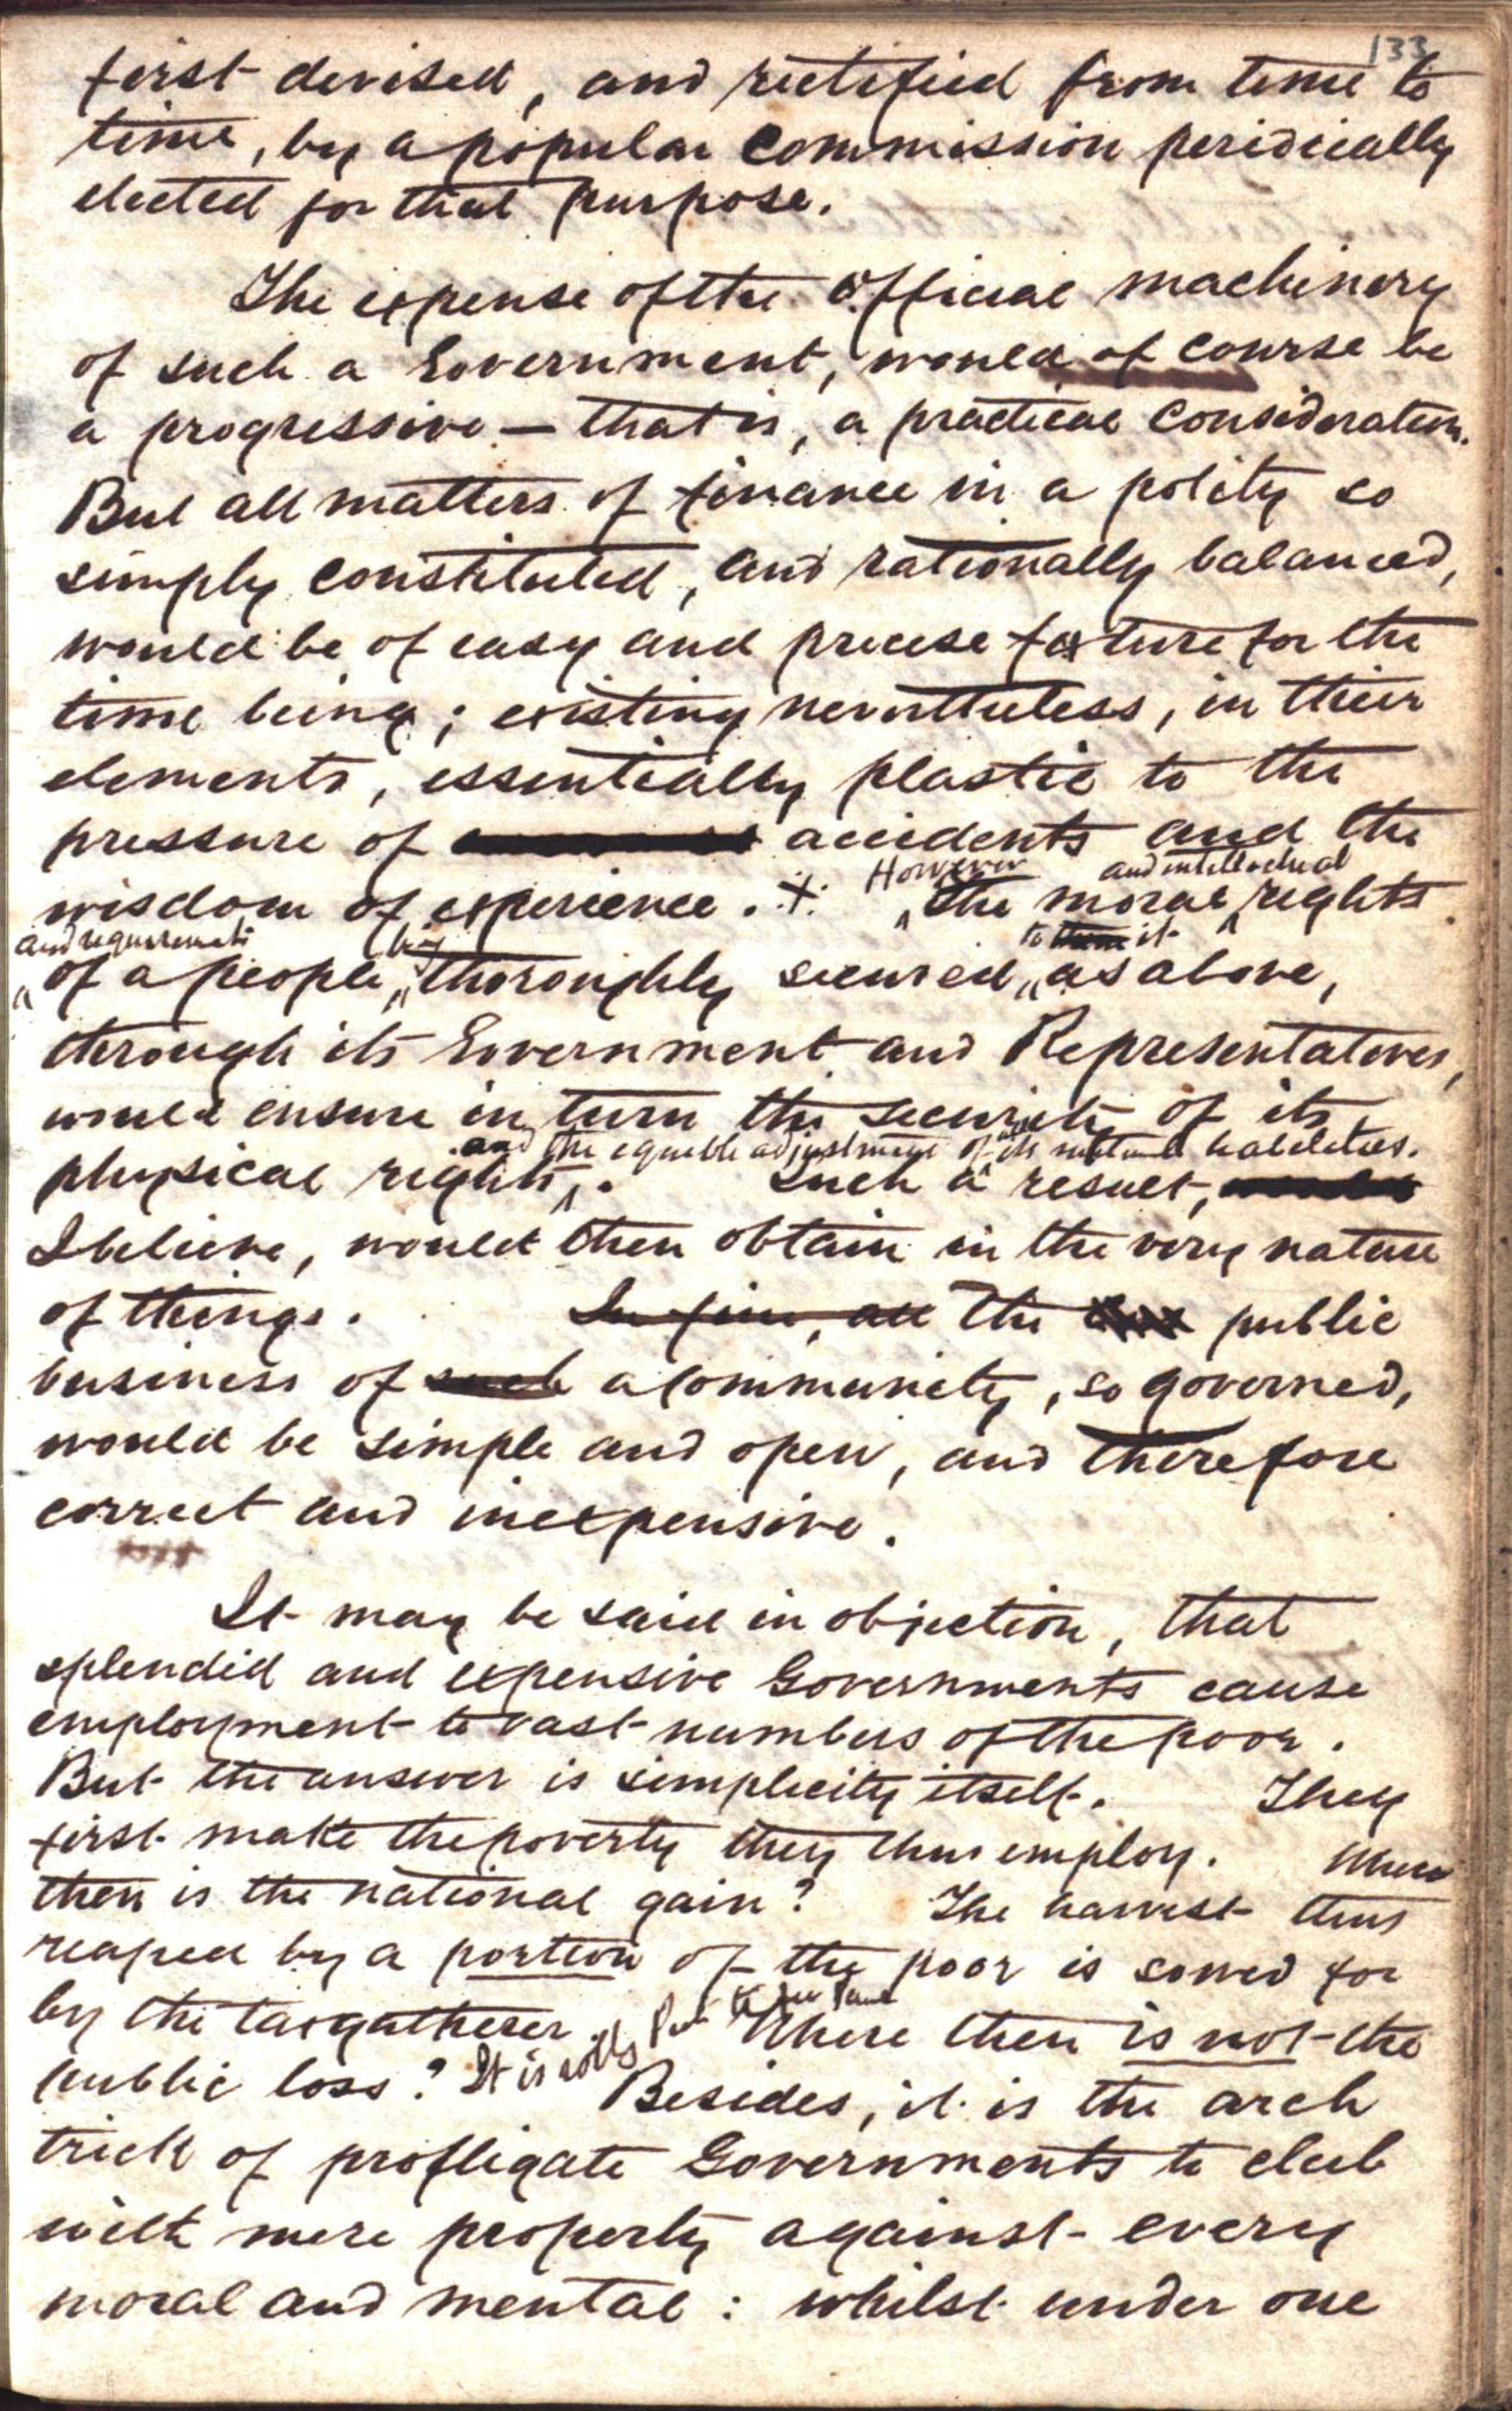 133
first devised, and rectified from time to
time, by a popular Commission peridically
elected for that purpose.
The expense of the official machinery
of such a Government, would of course be
a progressive — that is, a practical consideration.
But all matters of finance in a polity so
simply constituted, and rationally balanced,
would be of easy and precise for the
time being; existing nevertheless, in their
elements, essentially plastic to the
pressure of accidents and the
However and intellectual
wisdom of experience. the moral rights
and requirements being to them it
of a people, thoroughly secured, as above,
through its Government and Representatives,
would ensure in turn the security of its
and the equable adjustment of all its liabilities.
physical rights. Such a result,
I believe, would then obtain in the very nature
of things. In fine, all the public
business of such a Community, so governed,
would be simple and open, and therefore
correct and inexpensive.
It may be said in objection, that
splendid and expensive Governments cause
employment to vast numbers of the poor.
But the answer is simplicity itself. They
first make the poverty they thus employ. Where
then is the national gain? The harvest thus
reaped by a portion of the poor is sowed for
by the taxgatherer. Where then is not the
public loss? It is Besides, it is the arch
trick of profligate Governments to club
with mere property against every
moral and mental: whilst under one